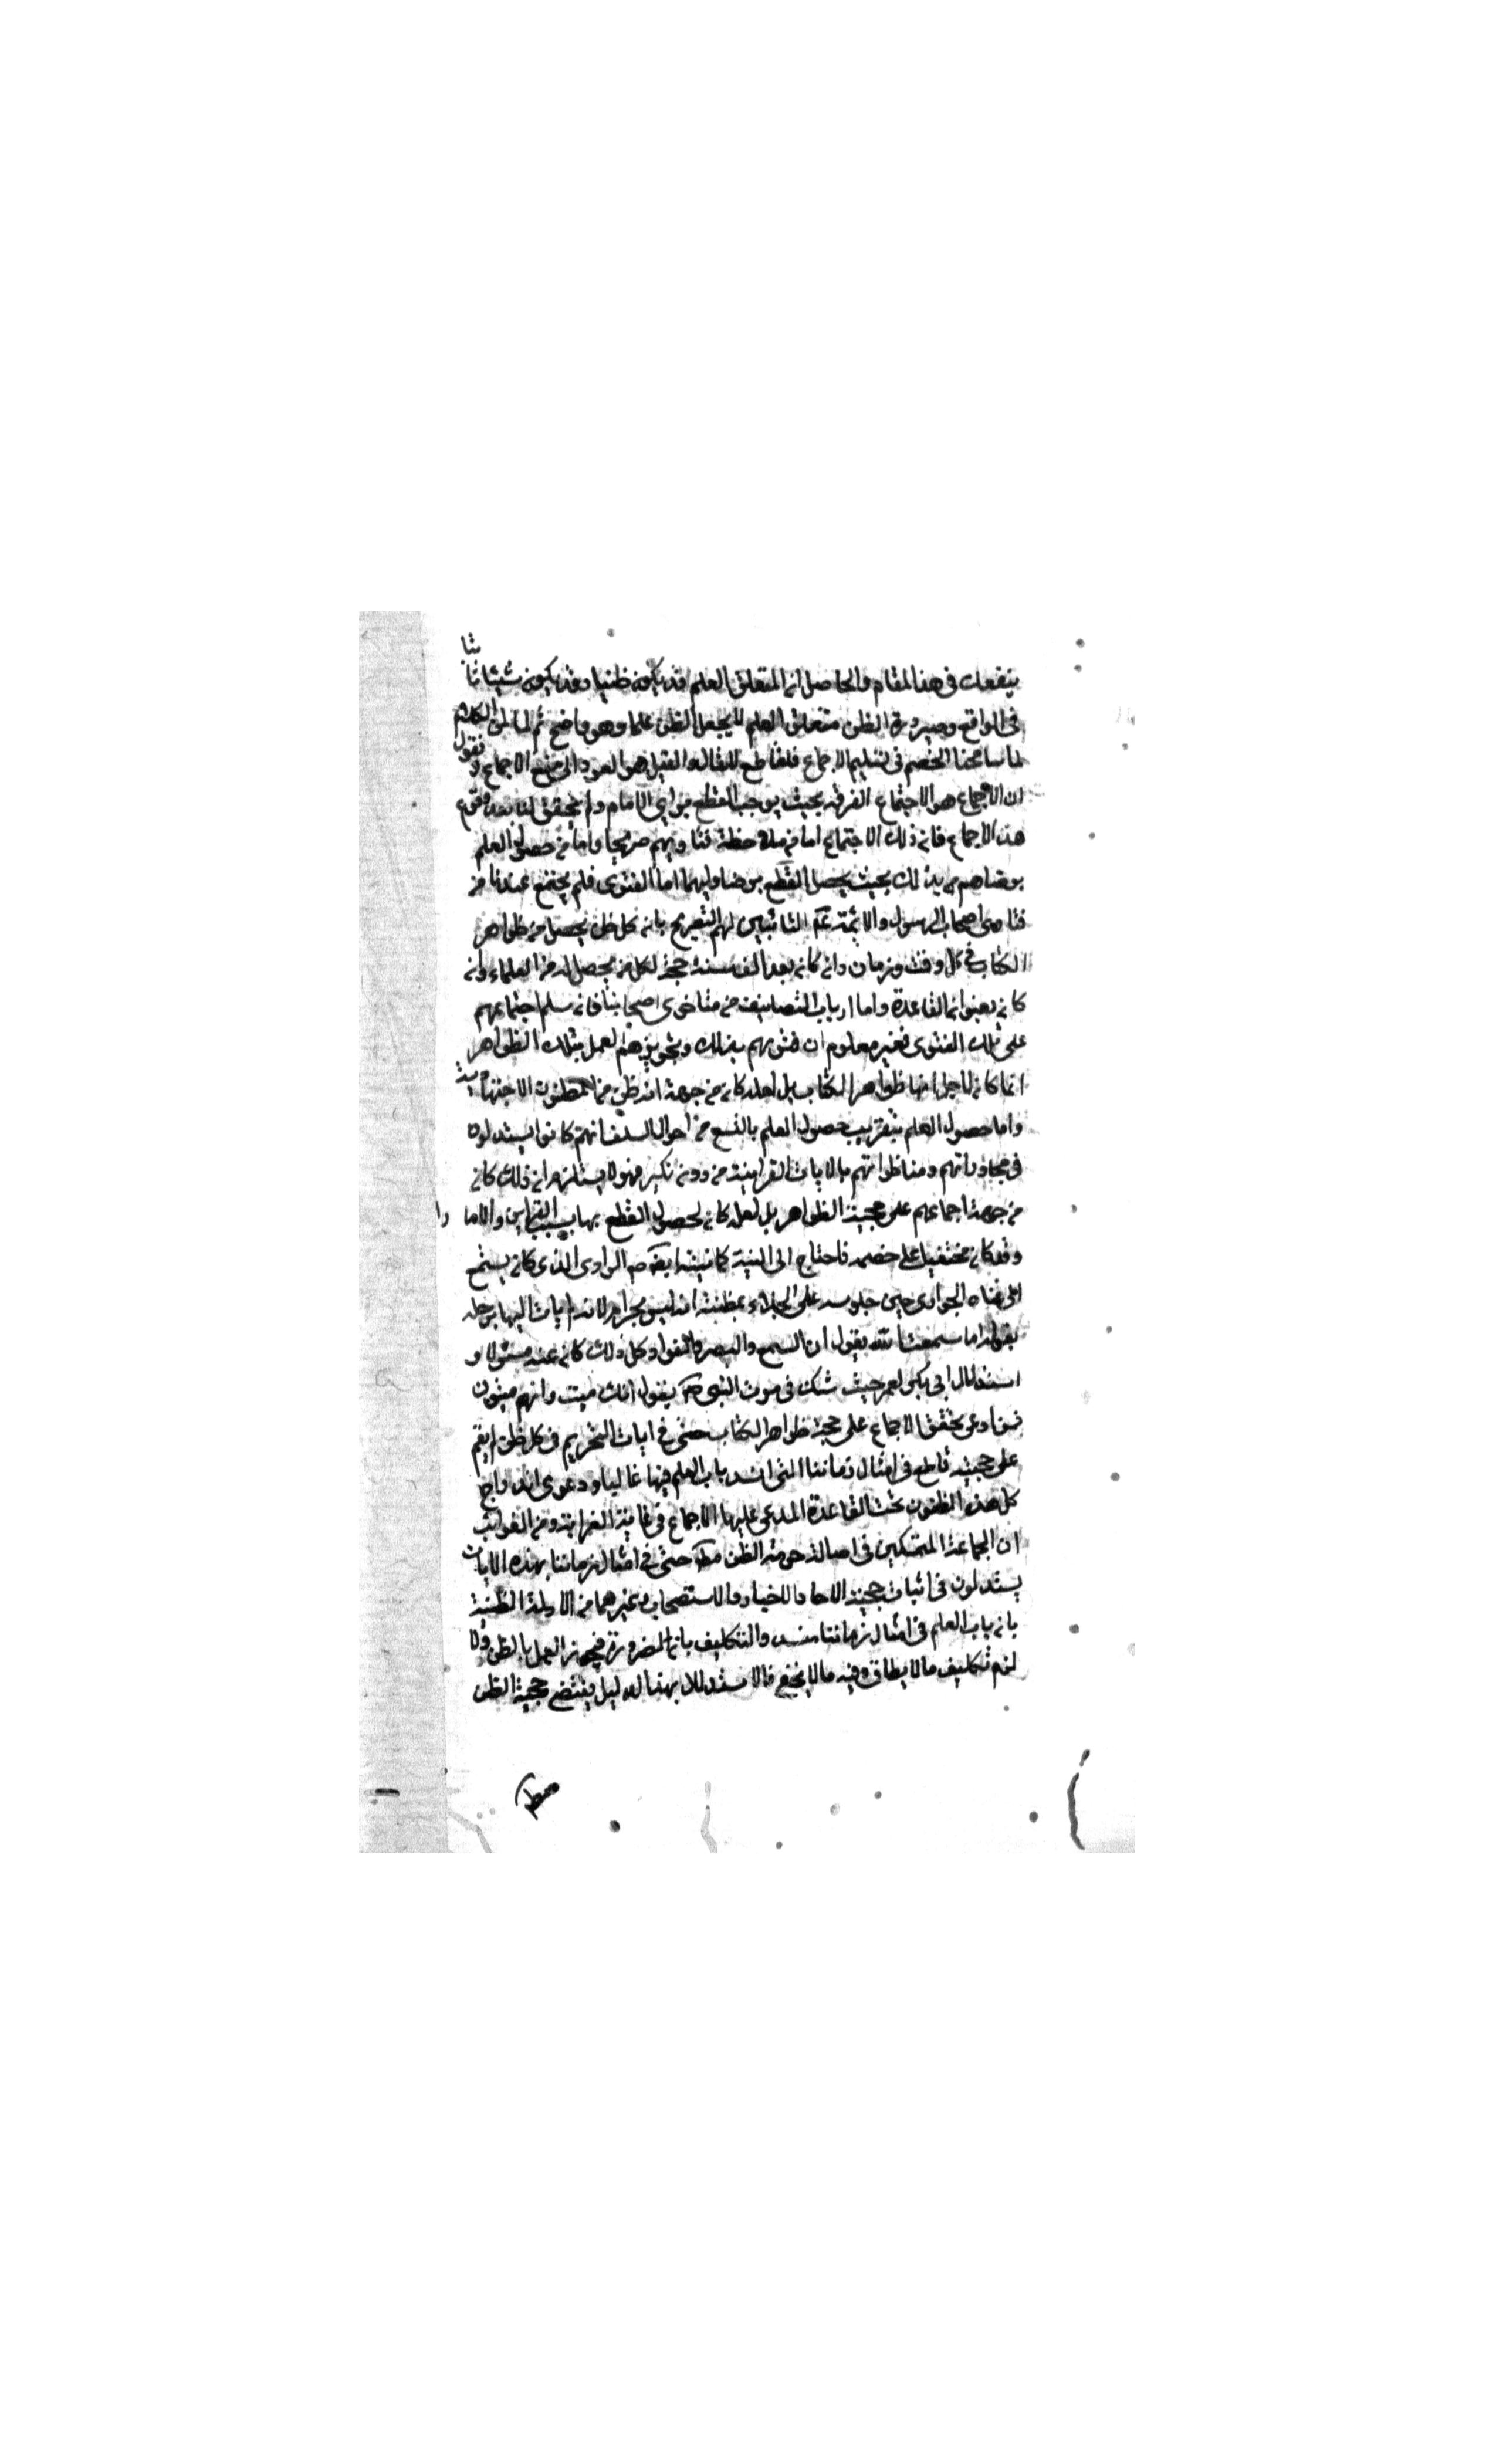 ينفعك في هذا المقام والحاصل ان المتعلق العلم قد يكون ظنيا وقد يكون شيئا ثابتا
في الواقع وصيرورة الظن متعلق العلم لا يجعل الظن علما وهو واضح ثم لما لمن الكلام
لما سامحنا الخصم في تسليم الاجماع فلقاطع للقال والقيل هو العود الى منع الاجماع و نقول
ان الاجماع هو الاجتماع الفرقة بحيث يوجب القطع براي الامام ولم يتحقق لنا بعد وقوع
هذا الاجماع فان ذلك الاجتماع اما من ملاحظة فتاويهم صريحا واما من حصول العلم
برضاهم بذلك بحيث يحصل القطع برضا وليهما اما الفتوى فلم يجتمع عندنا من
فتاوى اصحاب الرسول والائمة عم التائبين لهم التصريح بان كل ظن يحصل من ظواهر
الكتاب في كل وقت وزمان وان كان بعد الف سنة حجة لكل من يحصل له من العلماء وانه
كان بعنوان القاعدة واما ارباب التصانيف من متاخرى اصحابنا فان سلم اجتماعهم
على تلك الفتوى فغير معلوم ان فتويهم بذلك وتجويزهم العمل بتلك الظواهر
انما كان لاجل انها ظواهر الكتاب بل لعله كان من جهة انه ظن من الظنون الاجتهادية
واما حصول العلم بتقريب حصول العلم بالتتبع من احوال السلف انهم كانوا يستدلون
في محاوراتهم ومناظراتهم بالايات القرانية من دون نكير فهو لا يستلزم ان ذلك كان
من جهة اجماعهم على حجية الظواهر بل لعله كان لحصول القطع بها بسبب القراين والامارا
وقد كان مختفيا على خصمه فاحتاج الى التنبيه كما نبه الصادق الراوى الذي كان يستمع
الى غناء الجوارى حين جلوسه على الخلاء بمظنة انه ليس بحرام لانه لم يات اليها برجله
بقوله اما سمعت الله يقول ان السمع والبصر والفواد كل ذلك كان عنه مسئولا و
استدلال ابي بكر لعمر حيث شك في موت النبي ص بقول انك ميت وانهم ميتون
فمن ادعى تحقق الاجماع على حجية ظواهر الكتاب حتى في ايات التحريم في كل ظن لم يقم
على حجيته قاطع في امثال زماننا التي انسد باب العلم فيها غالبا ودعوى اندراج
كل هذه الظنون تحت القاعدة المدعى عليها الاجماع في غاية الغرابة ومن الغرائب
ان الجماعة المتمسكين في اصالة حرمة الظن مط حتى في امثال زماننا بهذه الايات
يستدلون في اثبات حجية الاحاد الاخبار والاستصحاب وغيرهما من الادلة الظنية
بان باب العلم في امثال زماننا منسد والتكليف باق بالضرورة فيجوز العمل بالظن والا
لزم تكليف ما لا يطاق وفيه ما لا يخفى فالاستدلال بهذا الدليل يقتضي حجية الظن
مط